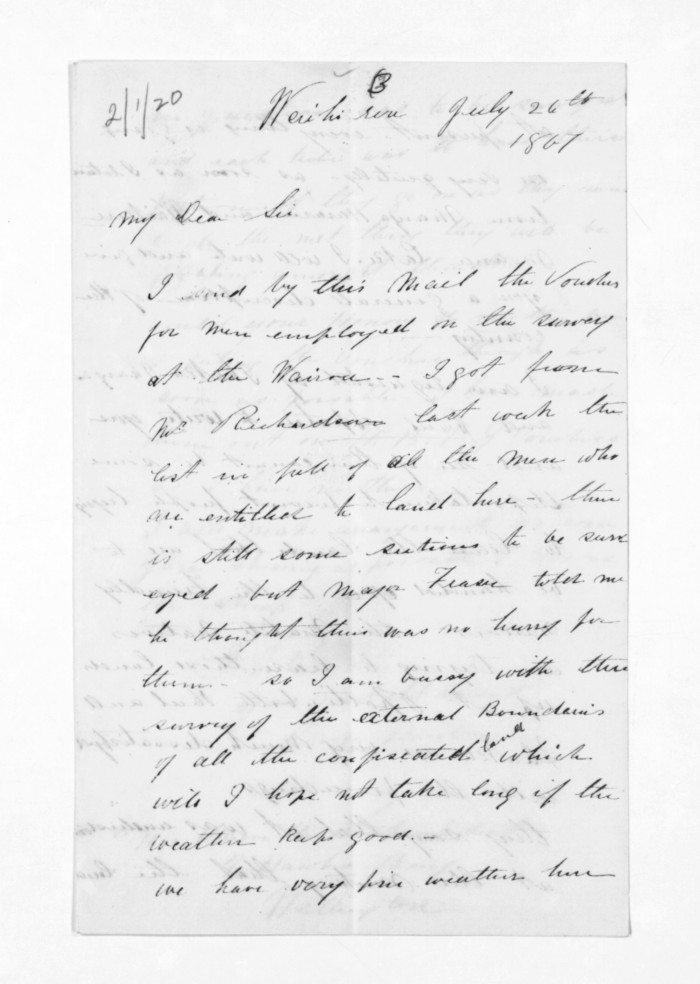 2/1/20
3
July 26th
1867
My Dear Sir
I send by this Mail the Voucher
for men employed on the survey
at the Wairoa - I got from
Mr Richardson last week the
list in full of all the men who
are entitled to land here - there
is still some sections to be surv
eyed but Major Fraser told me
he thought there was no hurry for
them - so I am bussy with the
survey of the external Boundaris
of all the confiscated land which
will I hope not take long if the
weather keeps good. -
we have very fine weather here